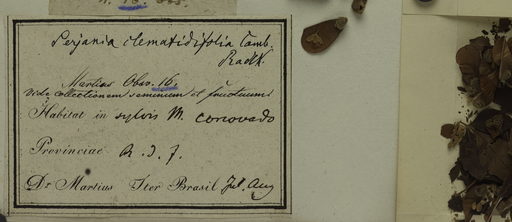 Serjania clematidifolia Camb.
Radlk.
Martius Obs. 16.
Vide collectionem seminum et fructuum!
Habitat in sylvis M. conovado
Provinciae R. d. J.
Dr Martius Iter Brasil Jul. Aug